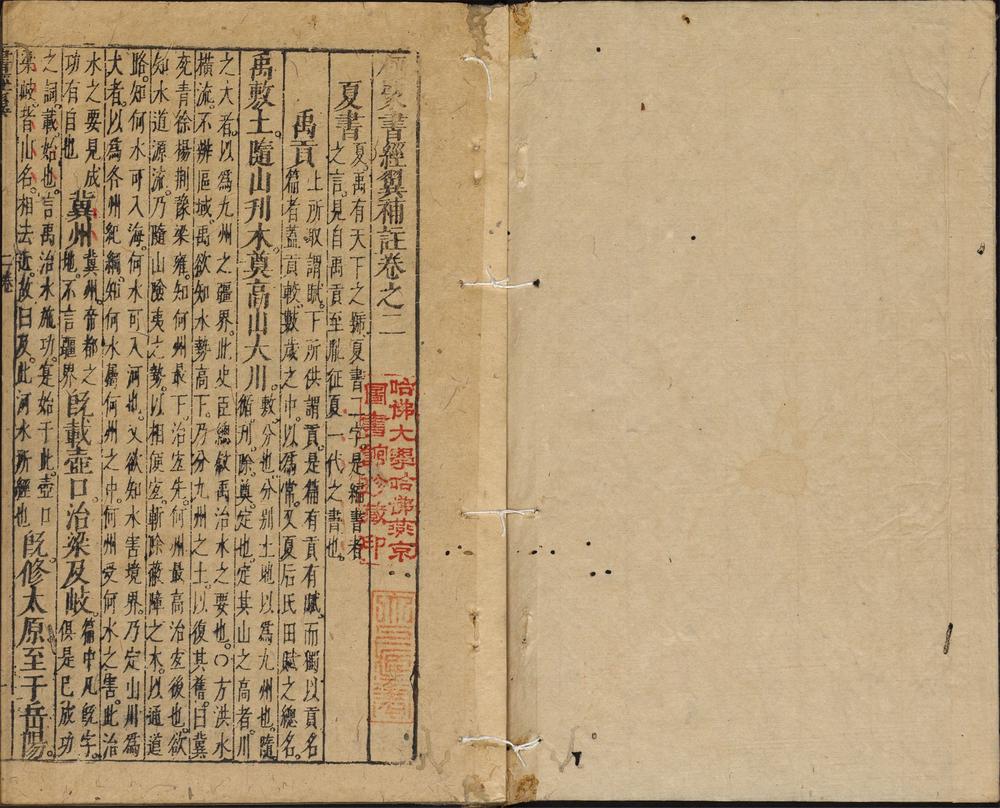 書經翼補註卷之二
夏書 夏禹有天下之號夏書二字是編書者
之言見自禹貢至胤征夏一代之書也
禹貢 上所取謂賦下所供謂貢是篇有貢有賦而獨以貢名
篇者蓋貢較數歲之中以爲常又夏后氏田賦之總名
禹敷土隨山刊木奠高山大川 敷分也分別土地以爲九州也隨
循刊除奠定也定其山之高者川
之大者以爲九州之疆界此史臣總敘禹治水之要也○方洪水
橫流不辨區域禹欲知水勢高下乃分九州之土以復其舊曰冀
兗青徐楊荆豫梁雍知何州最下治宜先何州最高治宜後也欲
知水道源流乃隨山險夷之勢以相便宜斬除蔽障之木以通道
路知何水可入海何水可入河也又欲知水害境界乃定山川爲
大者以爲各州紀綱知何水屬何州之中何州受何水之害此治
水之要見成
功有自也 冀州 冀州帝都之
地不言疆界 旣載壺口治梁及岐 篇中凡旣字
俱是已成功
之詞載始也言禹治水施功寔始于此壺口
梁岐皆山名相去近故曰及此河水所經也 旣修太原至于岳陽
二卷
哈佛大學哈佛燕京
圖書館珍藏印